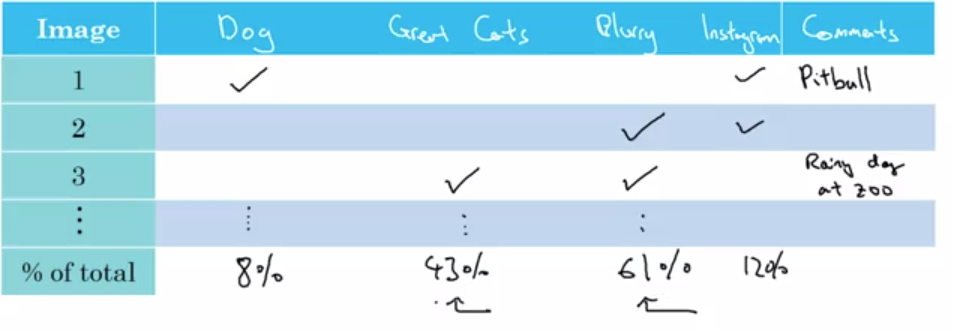 Image Dog Great Cats Blurry Instagram Comments
1 ✓ ✓ Pitball
2 ✓ ✓
3 ✓ ✓ Rainy day at zoo
⋮ ⋮ ⋮ ⋮
% of total 8% 43% 61% 12%